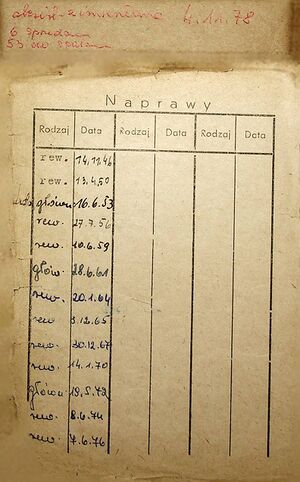 4.10.78
6
53
Naprawy
Rodzaj Data Rodzaj Data Rodzaj Data
rew. 14,11,46
rew. 13.4.50
główn 16.6.53
rew. 27.7.56
rew. 10.6.59
głów. 28.6.61
rew. 20.1.64
rew. 3.12.65
rew. 30.12.67
rew. 14.1.70
główn 19.5.72
rew. 8.6.74
rew. 7.6.76